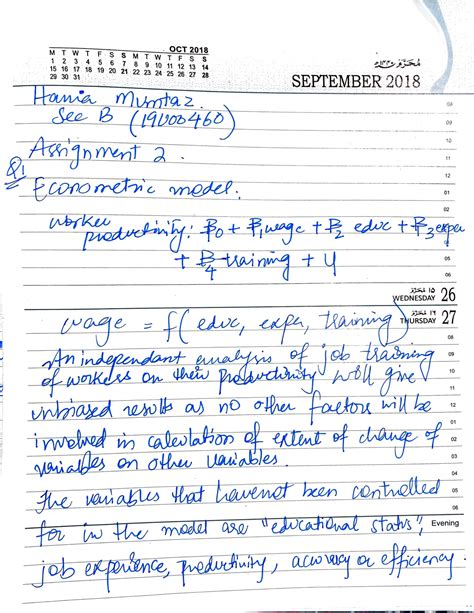 OCT 2018
M T W T F S S M T W T F S S
1 2 3 4 5 6 7 8 9 10 11 12 13 14
15 16 17 18 19 20 21 22 23 24 25 26 27 28
29 30 31
SEPTEMBER 2018
Hania Mumtaz.
Sec B (19U00460)
Assignment 2.
Q1
Econometric model:
worker
productivity: β0 + β1wage + β2 educ + β3 exper
+ β4 training + u
WEDNESDAY 26
THURSDAY 27
wage = f( educ, exper, training)
An independant analysis of job training
of workers on their productivity will give
unbiased results as no other factors will be
involved in calculation of extent of change of
variables on other variables.
The variables that havenot been controlled
for in the model are "educational status",
Evening
job experience, productivity, accuracy or efficiency.